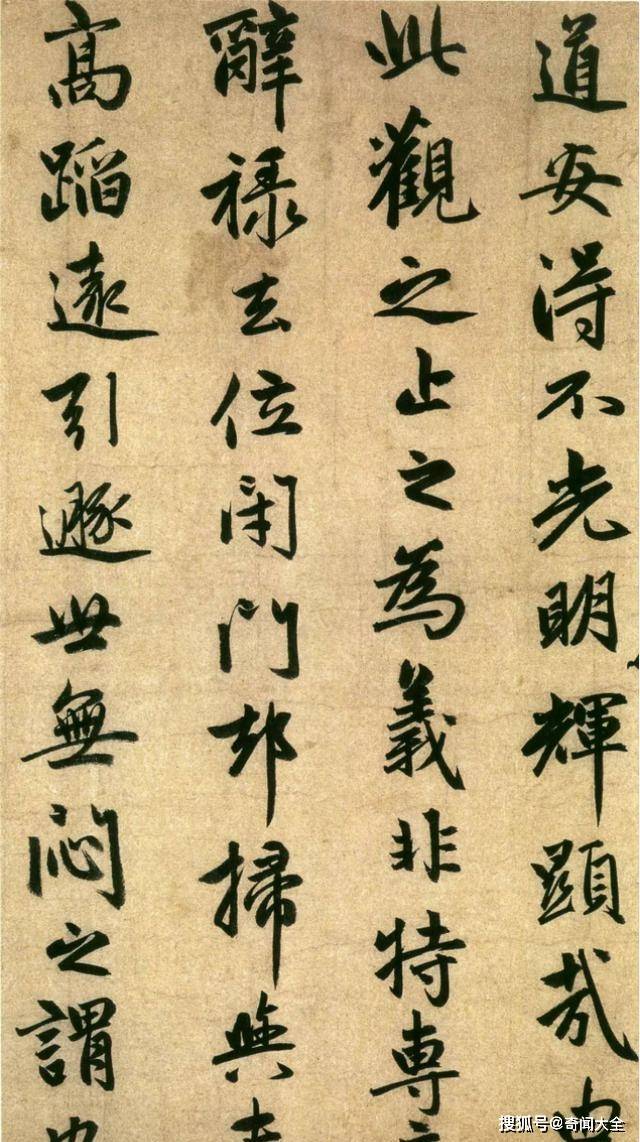 道安得不光明輝顯哉由
此觀之止之為義非特專
辭祿去位閉門却掃與夫
高蹈遠引遯世無悶之謂也
搜狐号@奇闻大全